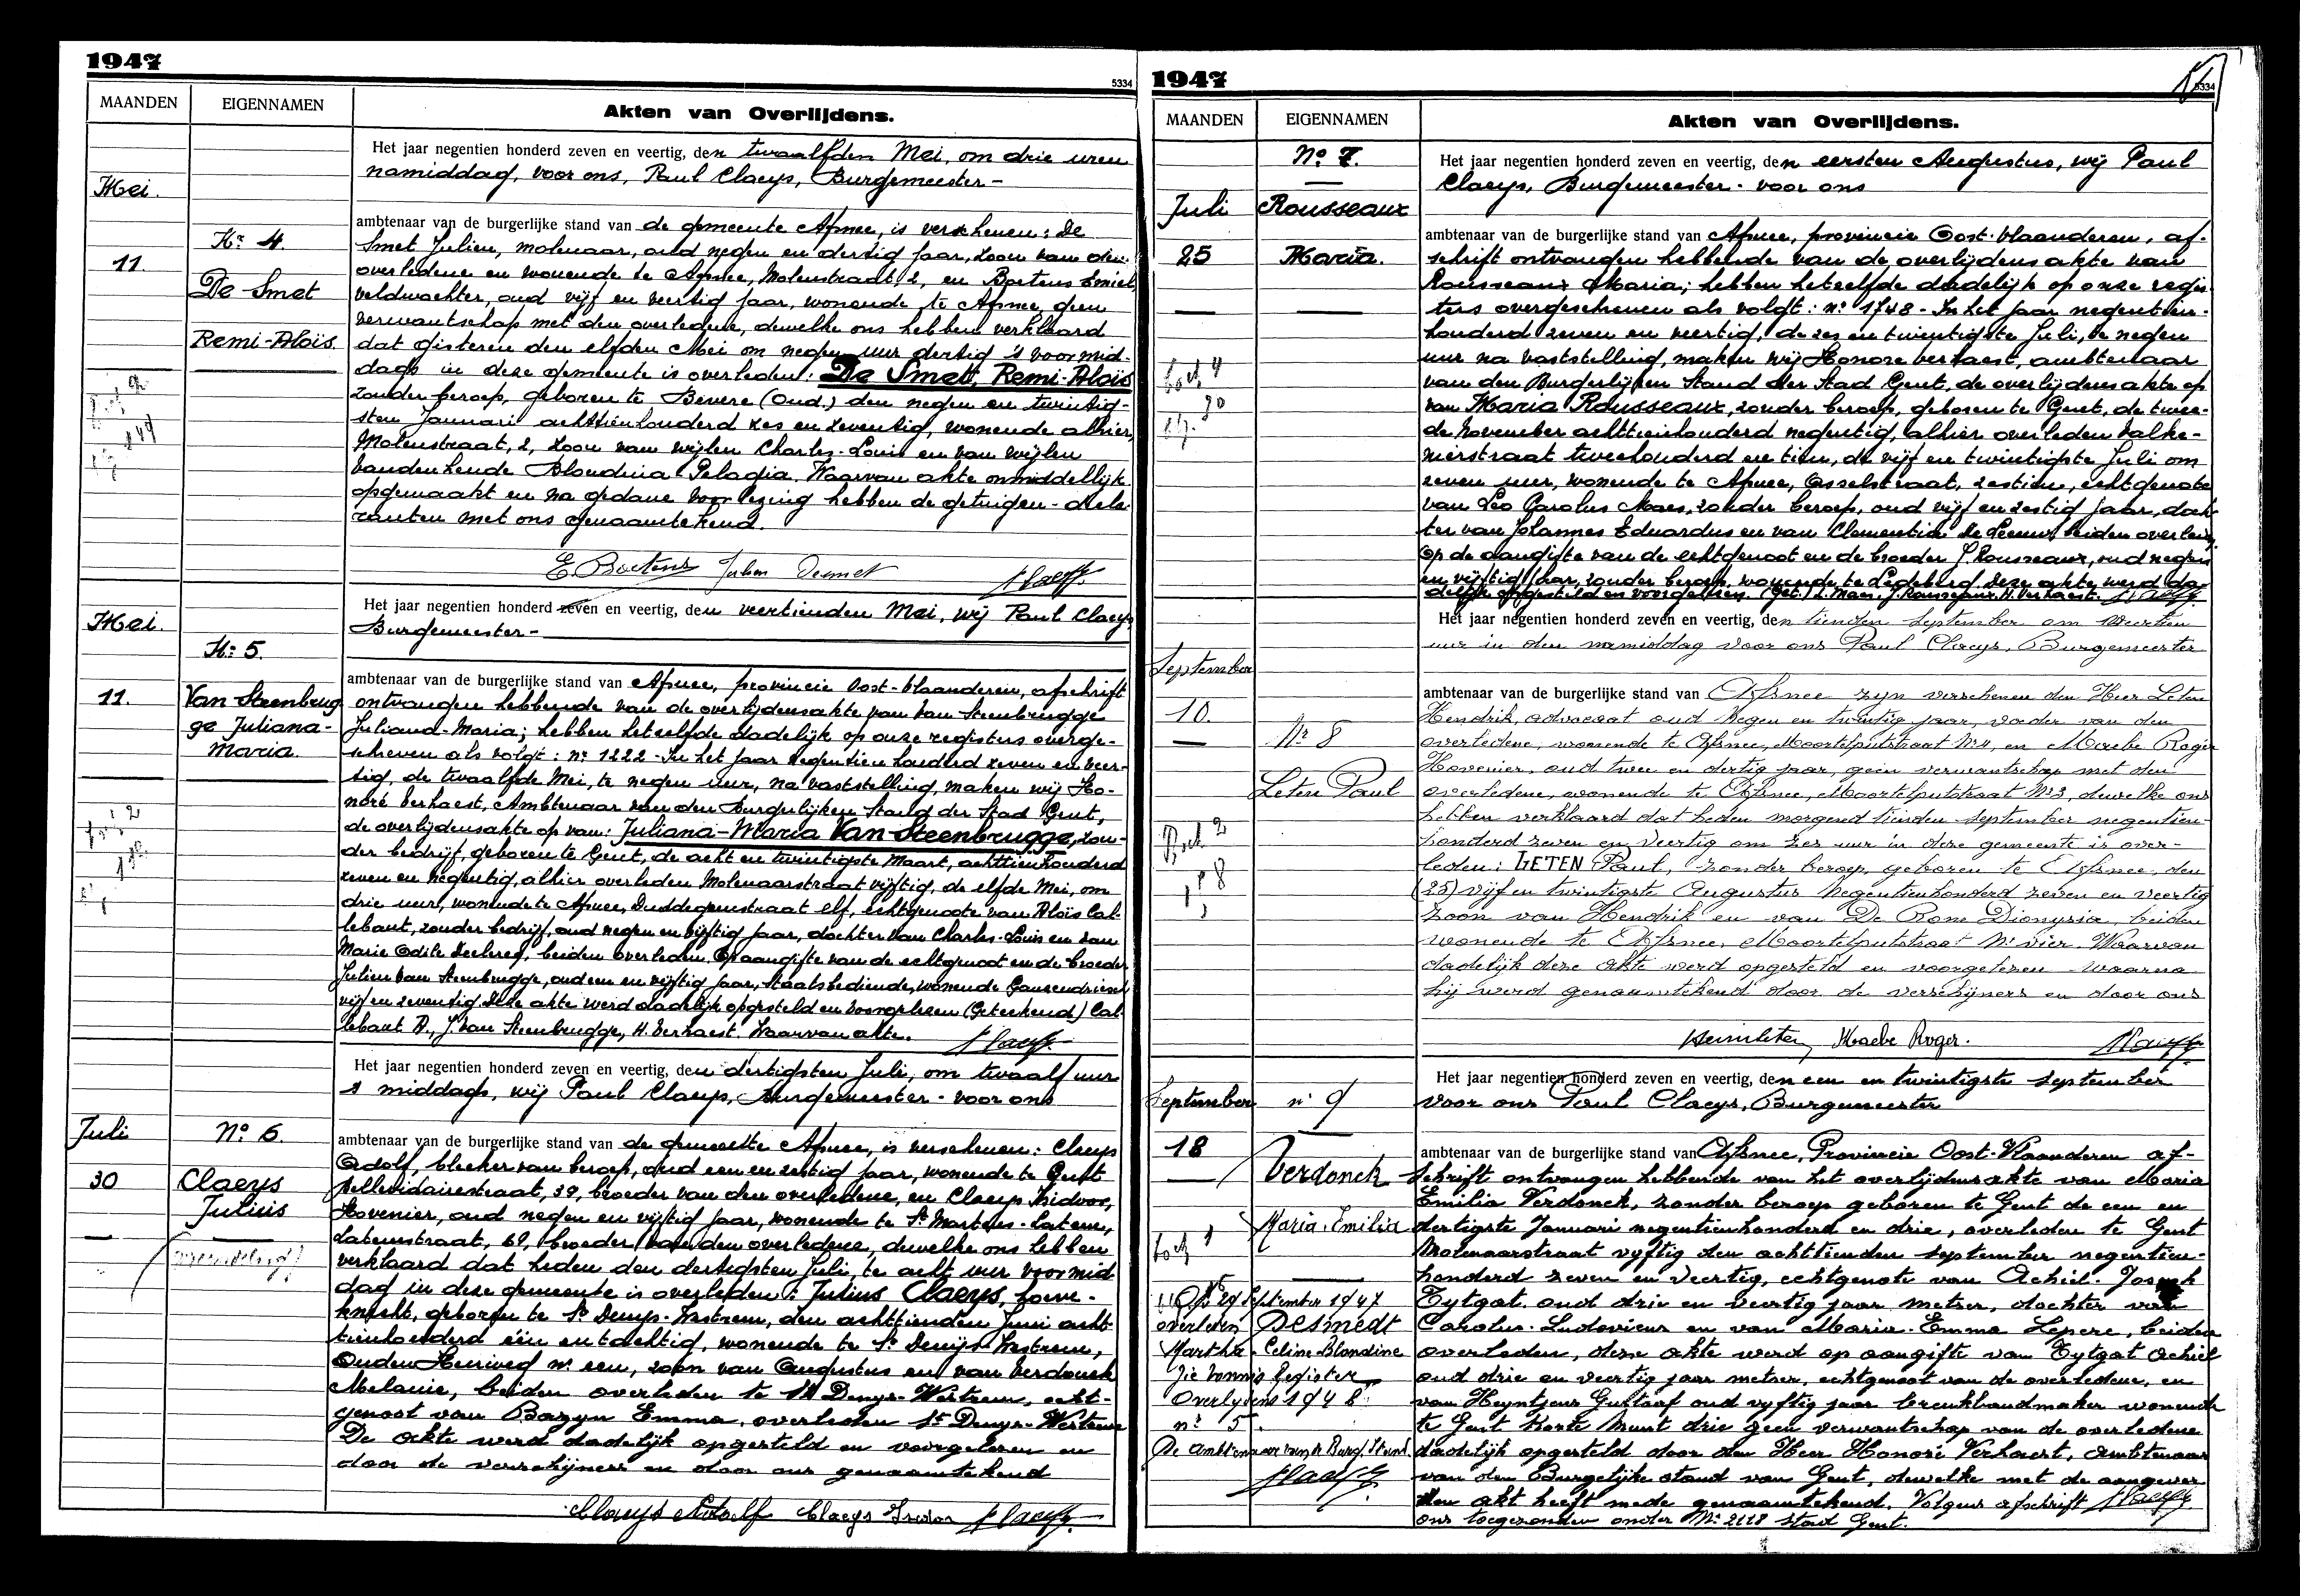 1947
5334
MAANDEN
EIGENNAMEN
Akten van Overlijdens.
Het jaar negentien honderd zeven en veertig, den twaalfden Mei, om drie uren
namiddag, voor ons, Paul Claeys, Burgemeester-
Mei.
11.
Nr 4.
De Smet
Remi-Aloïs
ambtenaar van de burgerlijke stand van de gemeente Afsnee, is verschenen: De
Smet Julien, molenaar, oud negen en dertig jaar, zoon van den
overledene en wonende te Afsnee, Molenstraat, 2, en Boetens Emiel,
veldwachter, oud vijf en veertig jaar, wonende te Afsnee, geen
verwantschap met den overledene, dewelke ons hebben verklaard
dat gisteren den elfden Mei om negen uur dertig 's voormid-
dags in deze gemeente is overleden: De Smet, Remi-Aloïs
zonder beroep, geboren te Bevere (Oud.) den negen en twintig-
sten Januari achttienhonderd zes en zeventig, wonende alhier,
Molenstraat, 2, zoon van wijlen Charles-Louis en van wijlen
Vandenhende Blondina Pelagia. Waarvan akte onmiddellijk
opgemaakt en na gedane voorlezing hebben de getuigen-
met ons genaamtekend.
E. Boetens Julien Desmet Claeys
Het jaar negentien honderd zeven en veertig, den veertienden Mei, wij Paul Claeys
Burgemeester-
Mei.
11.
Nr 5.
Van Steenbrug
ge Juliana-
Maria.
ambtenaar van de burgerlijke stand van Afsnee, provincie Oost-Vlaanderen, afschrift
ontvangen hebbende van de overlijdensakte van Van Steenbrugge
Juliana-Maria; hebben hetzelfde dadelijk op onze registers overge-
schreven als volgt: nr 1222 - In het jaar negentienhonderd zeven en veer-
tig, de twaalfde Mei, te negen uur, na vaststelling, maken wij Ho-
noré Verhaest, Ambtenaar van den Burgerlijken Stand der Stad Gent,
de overlijdensakte op van: Juliana-Maria Van Steenbrugge, zon-
der bedrijf, geboren te Gent, de acht en twintigste Maart, achttienhonderd
zeven en negentig, alhier overleden Molenaarstraat vijftig, de elfde Mei, om
drie uur, wonende te Afsnee, Duddegemstraat elf, echtgenoote van Aloïs Cal-
lebaut, zonder bedrijf, oud negen en vijftig jaar, dochter van Charles-Louis en van
Marie Odile Declercq, beiden overleden. Op aangifte van de echtgenoot en de broeder
Julien Van Steenbrugge, oud een en vijftig jaar, Staatsbediende, wonende Ganzendries
vijf en zeventig. Deze akte werd dadelijk opgesteld en voorgelezen (Geteekend) Cal-
lebaut A., J. Van Steenbrugge, H. Verhaest. Waarvan akte.
Claeys
Het jaar negentien honderd zeven en veertig, den dertigsten Juli, om twaalf uur
's middags, wij Paul Claeys, Burgemeester - voor ons
Juli
30
No 6.
Claeys
Julius
ambtenaar van de burgerlijke stand van de gemeente Afsnee, is verschenen: Claeys
Adolf, bleeker van beroep, oud een en zestig jaar, wonende te Gent
39, broeder van den overledene, en Claeys Isidoor,
Hovenier, oud negen en vijftig jaar, wonende te St Martens-Latem,
Latemstraat, 69, broeder van den overledene, dewelke ons hebben
verklaard dat heden den dertigsten Juli, te acht uur voormid
dag in deze gemeente is overleden: Julius Claeys,
knecht, geboren te St Denijs-Westrem, den achttienden Juni acht-
tienhonderd één en tachtig, wonende te St Denijs-Westrem,
Ouden Heirweg nr een, zoon van Augustus en van Verdonck
Melanie, beiden overleden te St Denys-Westrem, echt-
genoot van Bazyn Emma, overleden St Denys-Westrem
De akte werd dadelijk opgesteld en voorgelezen en
door de verschijners en door ons genaamtekend
Claeys Adolf Claeys Isidoor Claeys
1947
5334
MAANDEN
EIGENNAMEN
Akten van Overlijdens.
Het jaar negentien honderd zeven en veertig, den eersten Augustus, wij Paul
Claeys, Burgemeester - voor ons
Juli
25
No 7.
Rousseaux
Maria.
ambtenaar van de burgerlijke stand van Afsnee, provincie Oost-Vlaanderen, af-
schrift ontvangen hebbende van de overlijdensakte van
Rousseaux Maria; hebben hetzelfde dadelijk op onze regis-
ters overgeschreven als voldt: nr 1748 - In het jaar negentien-
honderd zeven en veertig, de zes en twintigste Juli, te negen
uur na vaststelling, maken wij Honore Verhaest, ambtenaar
van den Burgerlijken Stand der Stad Gent, de overlijdensakte op
van Maria Rousseaux, zonder beroep, geboren te Gent, de twee-
de November achttienhonderd negentig, alhier overleden Valke-
nierstraat tweehonderd en tien, de vijf en twintigste Juli om
zeven uur, wonende te Afsnee, Asselstraat, zestien, echtgenote
van Leo Carolus Maes, zonder beroep, oud vijf en zestig jaar, doch-
ter van Johannes Eduardus en van Clementia De Leeuw, beiden overleden.
Op de aangifte van de echtgenoot en de broeder J. Rousseaux, oud negen
en vijftig jaar, zonder beroep, wonende te Ledeberg. Deze akte werd da-
delijk opgesteld en voorgelezen. (Get.) L. Maes, J. Rousseaux, H. Verhaest. Claeys
Het jaar negentien honderd zeven en veertig, den tienden September om veertien
uur in den namiddag voor ons Paul Claeys, Burgemeester
September
10.
Nr 8
Leten Paul
ambtenaar van de burgerlijke stand van Afsnee zijn verschenen den Heer Leten
Hendrik, advocaat oud negen en twintig jaar, vader van den
overledene, wonende te Afsnee, Moortelputstraat Nr 4, en Maebe Roger
Hovenier, oud twee en dertig jaar, geen verwantschap met den
overledene, wonende te Afsnee, Moortelputstraat Nr 3, dewelke ons
hebben verklaard dat heden morgend tienden September negentien-
honderd zeven en veertig om zes uur in deze gemeente is over-
leden: LETEN Paul, zonder beroep, geboren te Afsnee, den
(25) vijf en twintigste Augustus negentienhonderd zeven en veertig
zoon van Hendrik en van De Bone Dionysia, beiden
wonende te Afsnee, Moortelputstraat Nr vier. Waarvan
dadelijk deze akte werd opgesteld en voorgelezen waarna
hij werd genaamtekend door de verschijners en door ons
Maebe Roger. Claeys
Het jaar negentien honderd zeven en veertig, den een en twintigste September
voor ons Paul Claeys, Burgemeester
September
18
nr 9
Verdonck
Maria-Emilia
ambtenaar van de burgerlijke stand van Afsnee, Provincie Oost-Vlaanderen af-
schrift ontvangen hebbende van het overlijdensakte van Maria
Emilia Verdonck, zonder beroep geboren te Gent de een en
dertigste Januari negentienhonderd en drie, overleden te Gent
Molenaarstraat vyftig den achttienden September negentien-
honderd zeven en veertig, echtgenote van Achiel-Joseph
Tytgat, oud drie en veertig jaar metser, dochter van
Carolus-Ludovicus en van Maria-Emma Lepere, beiden
overleden, deze akte werd op aangifte van Tytgat Achiel
oud drie en veertig jaar metser, echtgenoot van de overledene, en
van Heyntjens Gustaaf oud vyftig jaar breukbandmaker wonende
te Gent Korte Munt drie geen verwantschap van de overledene
dadelijk opgesteld door den Heer Honoré Verhaest, Ambtenaar
van den Burgelijke stand van Gent, dewelke met de aangever
den akt heeft mede genaamtekend. Volgens afschrift Claeys
ons toegezonden onder Nr 2118 stad Gent.
Op 29 September 1947
overleden Desmedt
Martha-Celine-Blondine
Zie vonnis Register
Overlijdens 1948
nr 5.
De ambtenaar van de Burg. Stand.
Claeys